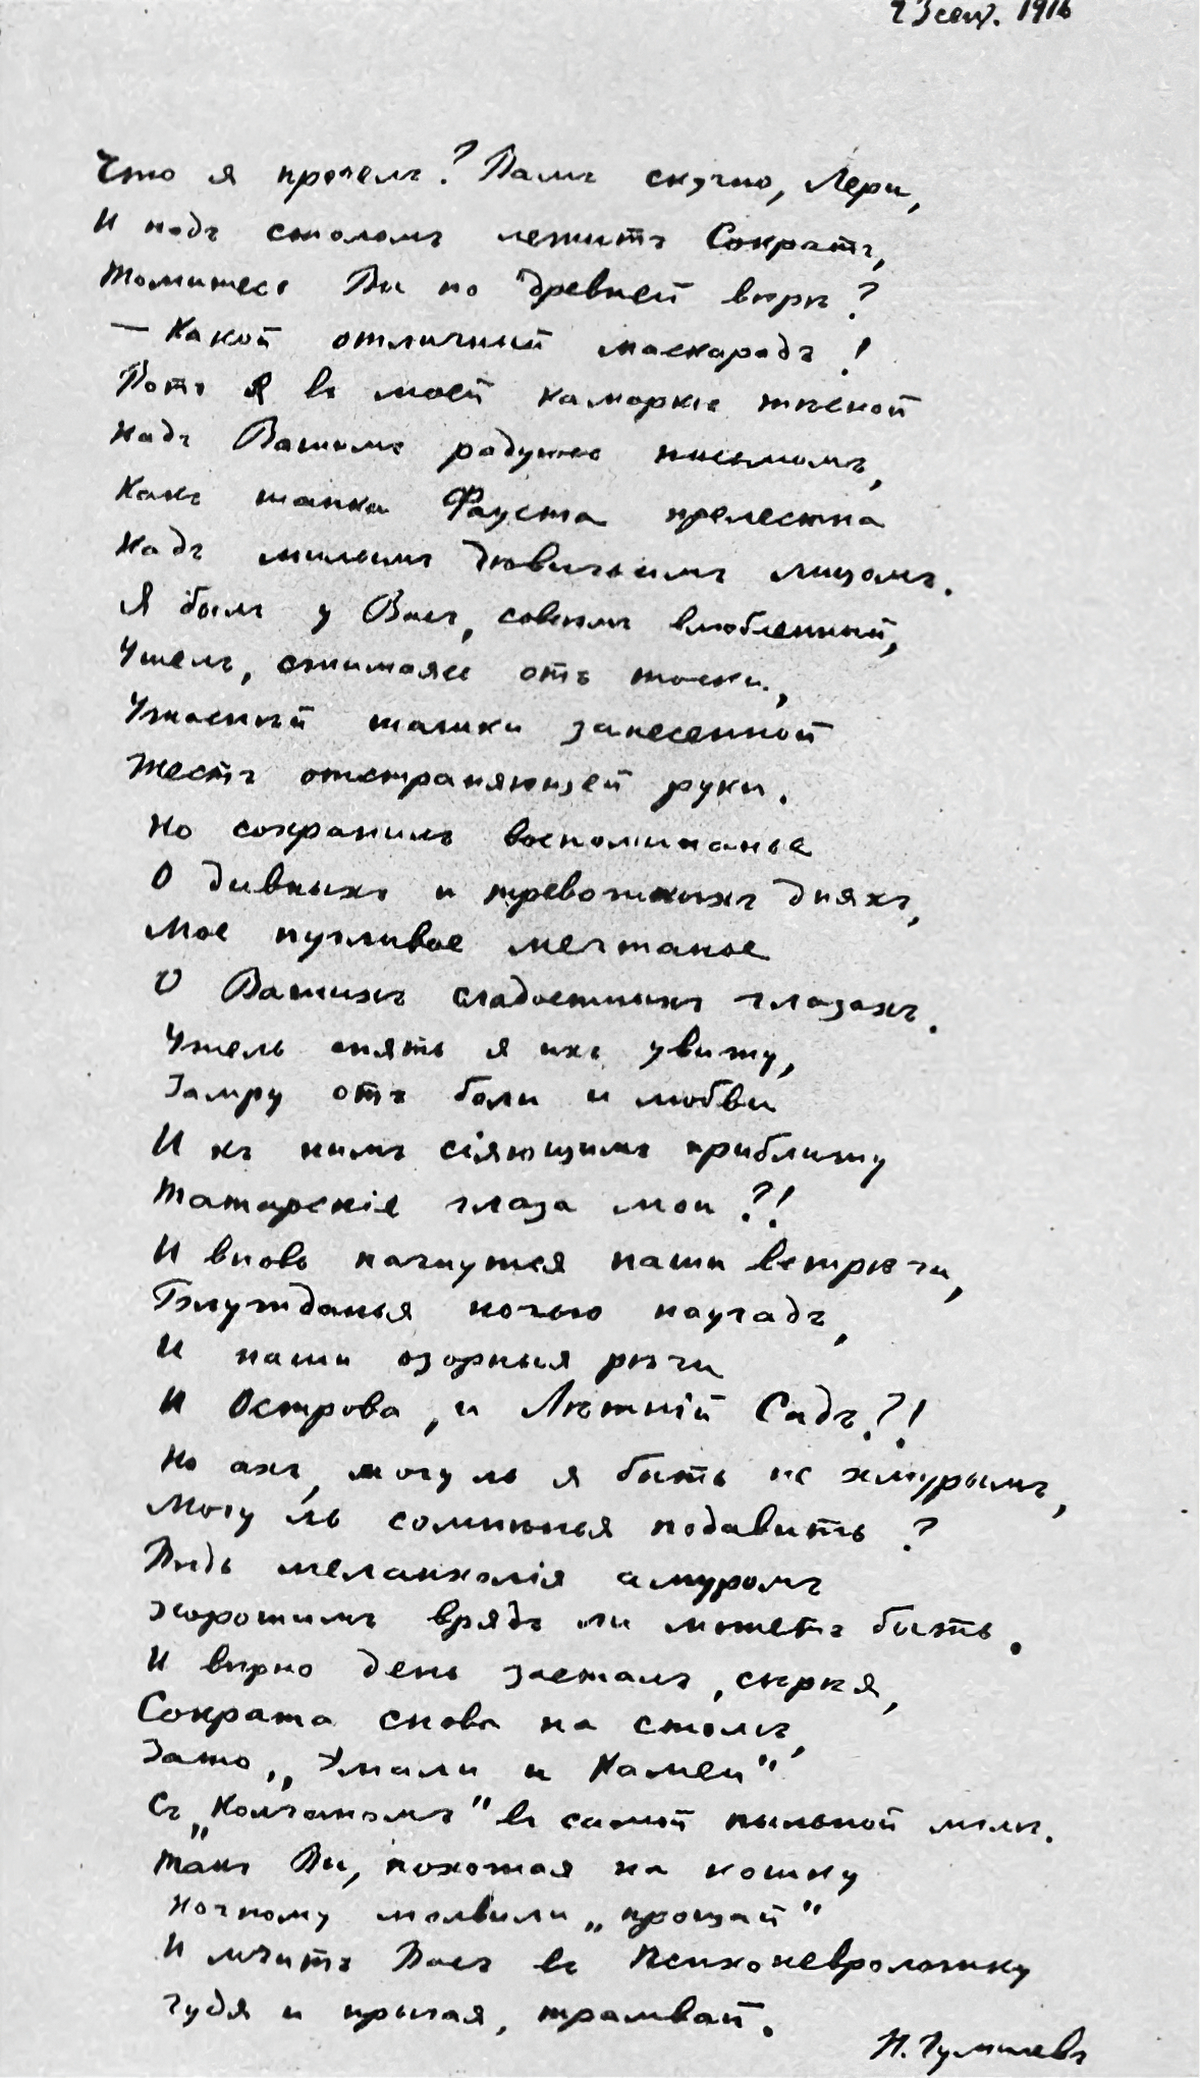 23 сент. 1916
Что я прочелъ? Вамъ скучно, Лери,
И подъ столомъ лежитъ Сократъ,
Томитесь Вы по древней вѣрѣ?
— Какой отличный маскарадъ!
Вотъ я въ моей каморкѣ тѣсной
Надъ Вашимъ радуюсь письмомъ,
Какъ шапка Фауста прелестна
Надъ милымъ дѣвичьимъ лицомъ.
Я былъ у Васъ, совсѣмъ влюбленный,
Ушелъ, сжимаясь отъ тоски,
Ужасный шашки занесенной
Жестъ отстраняющей руки.
Но сохранилъ воспоминанье
О дивныхъ и тревожныхъ дняхъ,
Мое пугливое мечтанье
О Вашихъ сладостныхъ глазахъ.
Ужель опять я ихъ увижу,
Замру отъ боли и любви
И къ нимъ сіяющимъ приближу
Татарскіе глаза мои?!
И вновь начнутся наши встрѣчи,
Блужданья ночью наугадъ,
И наши озорныя рѣчи
И Острова, и Лѣтній Садъ?!
Но ахъ, могу ль я быть не хмурымъ,
Могу ль сомнѣнья подавить?
Вѣдь меланхолія амуромъ
Хорошимъ врядъ ли можетъ быть.
И вѣрно день засталъ, сѣрѣя,
Сократа снова на столѣ,
Зато „Эмали и Камеи"
Съ „Колчаномъ" въ самой пыльной мглѣ.
Такъ Вы, похожая на кошку
Ночному молвили „прощай"
И мчитъ Васъ въ Психоневроложку
Гудя и прыгая, трамвай.
Н. Гумилевъ